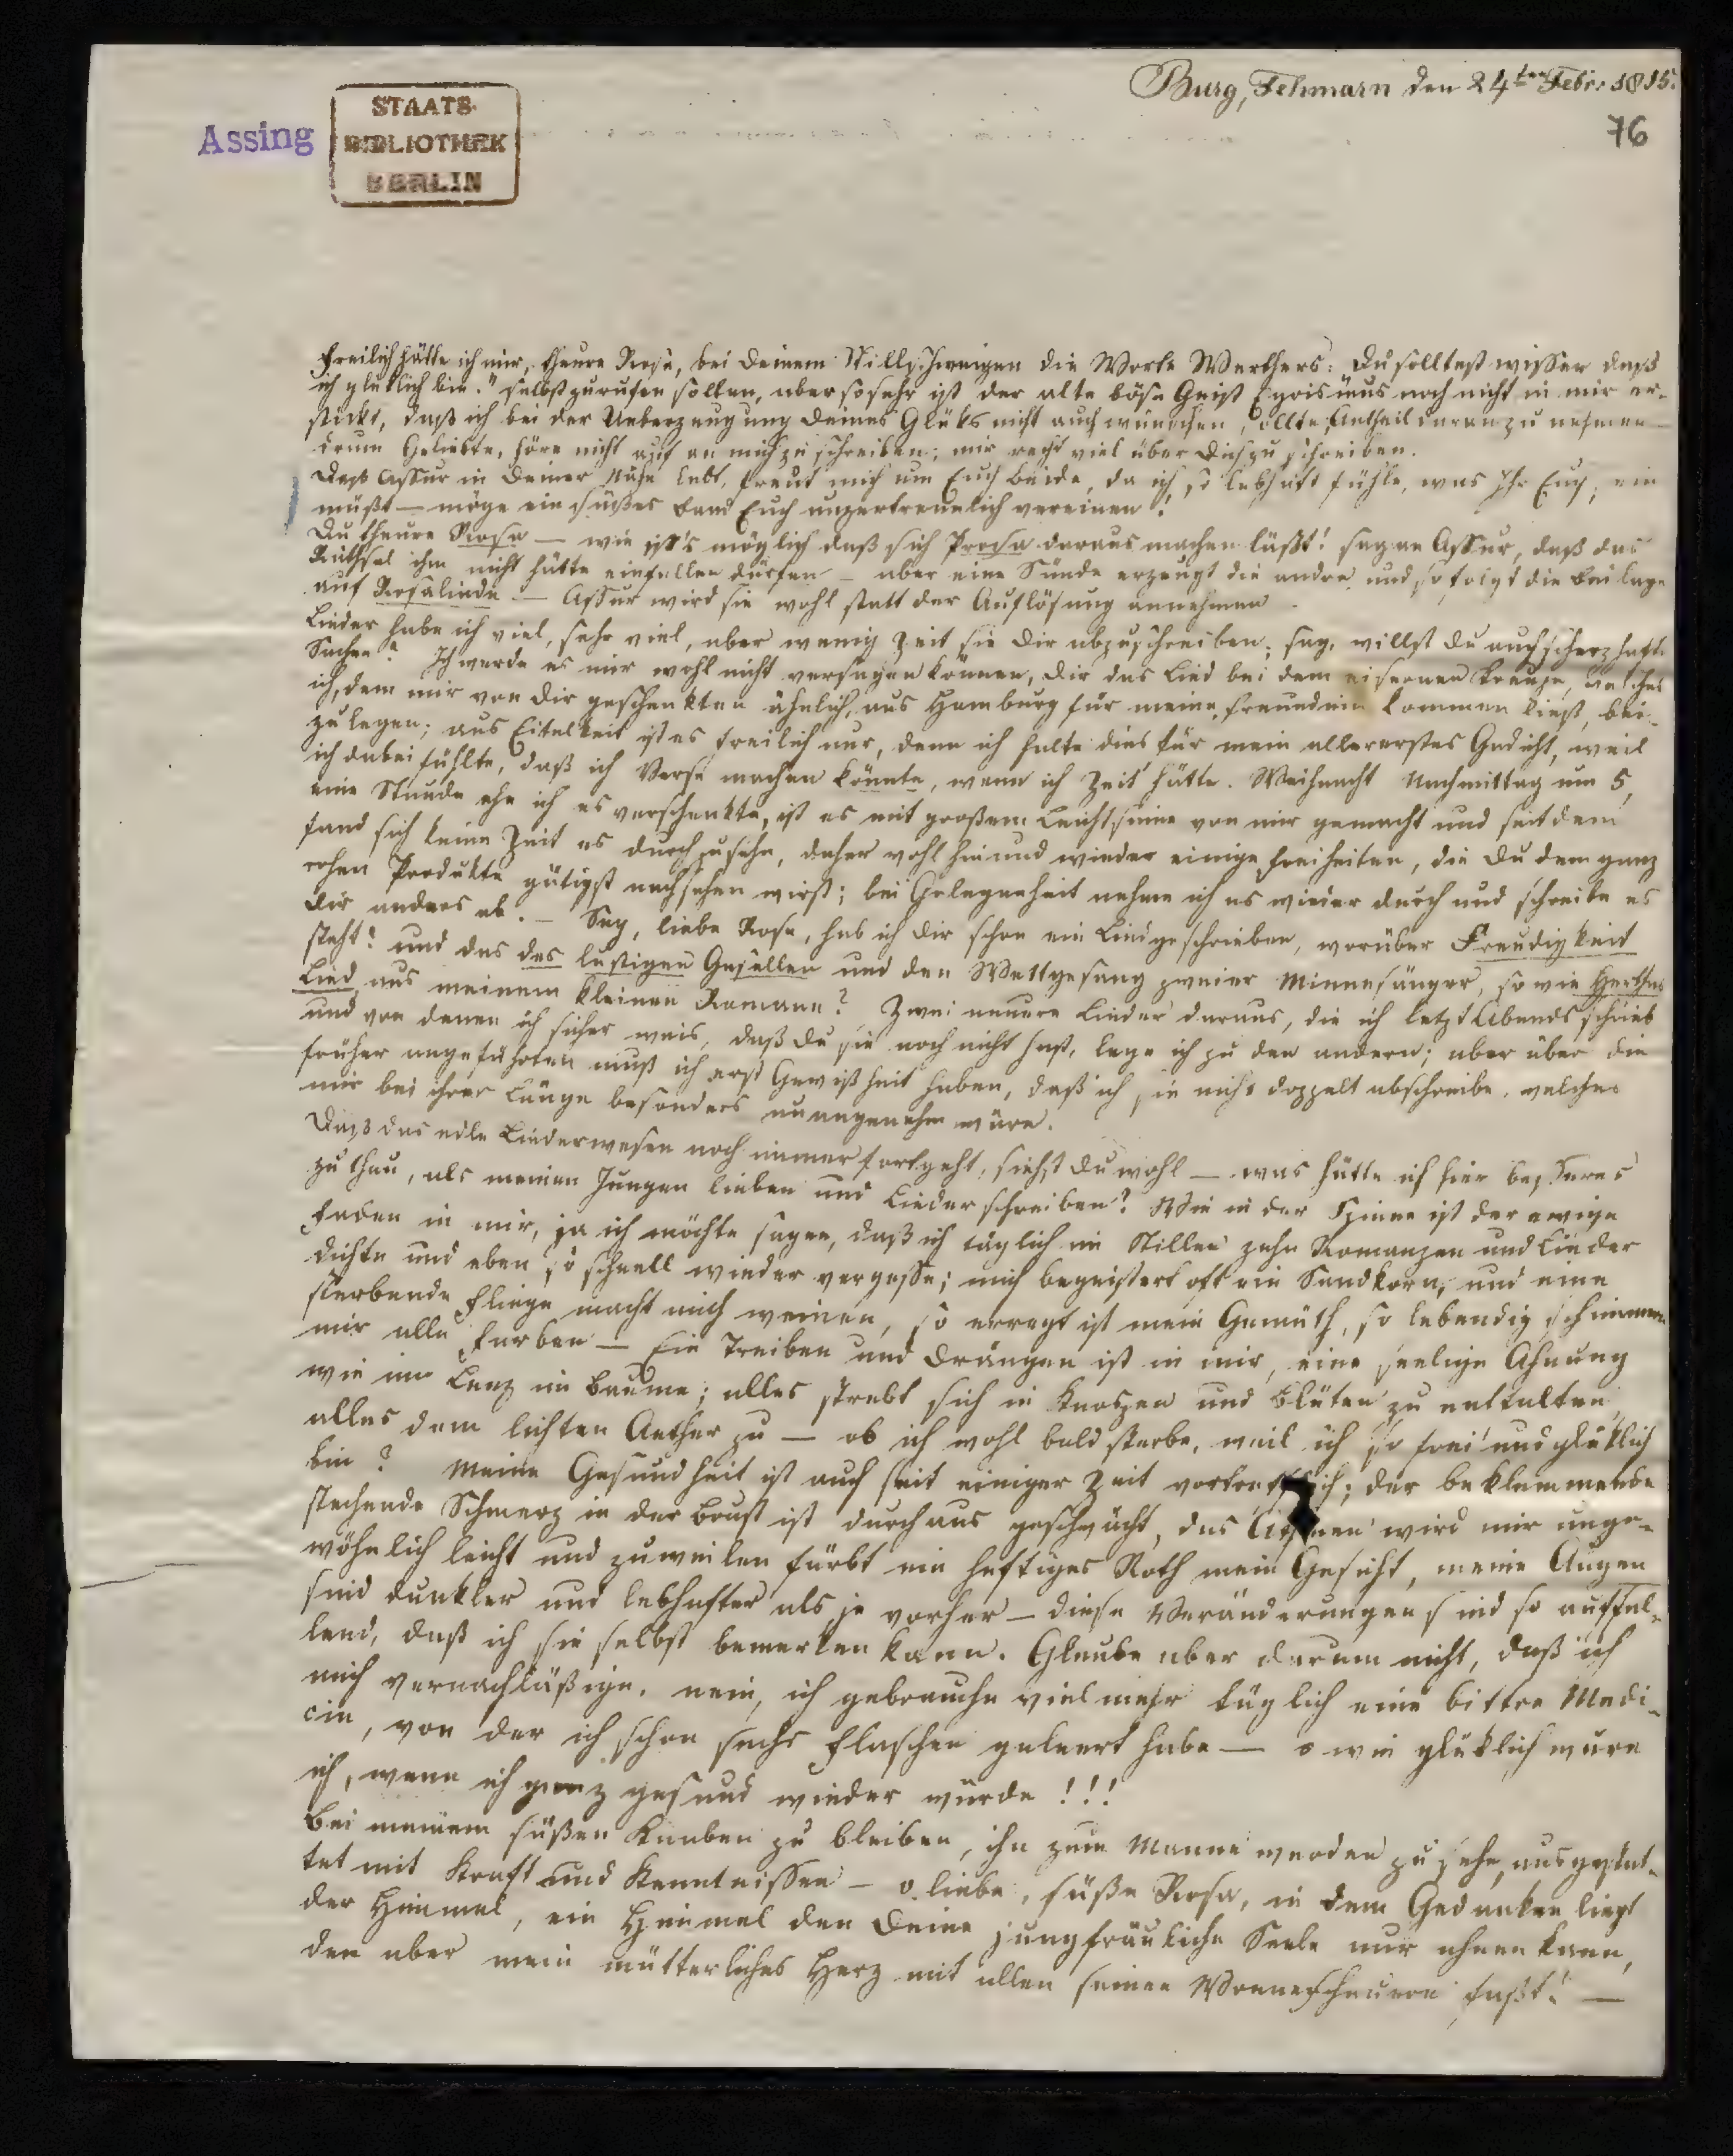 Burg, Fehmarn den 24ten Febr. 1815.
76
Assing
STAATS-
BIBLIOTHEK
BERLIN
Freilich hätte ich mir, theure Rosa, bei Deinem Stillschweigen die Worte Werthers: „Du solltest wissen daß
ich glüklich bin." selbst zurufen sollen, aber so sehr ist der alte böse Geist Egoismus noch nicht in mir er-
stickt, daß ich bei der Ueberzeugung Deines Glüks nicht auch wünschen sollte, Antheil daran zu nehmen —
drum Geliebte, höre nicht auf an mich zu schreiben; mir recht viel über Dich zu schreiben.
Daß Assur in Deiner Nähe lebt, freut mich um Euch beide, da ich so lebhaft fühle, was Ihr Euch sein
müßt — möge ein süßes Band Euch unzertrennlich vereinen!
Du theure Rosa — wie ist's möglich daß sich Prosa daraus machen läßt! sage an Assur, daß das
Räthsel ihm nicht hätte einfallen dürfen — aber eine Sünde erzeugt die andre und so folgt die Beilage
auf Rosalinde — Assur wird sie wohl statt der Auflösung annehmen.
Lieder habe ich viel, sehr viel, aber wenig Zeit sie Dir abzuschreiben; sag, willst Du auch scherzhafte
Sachen? Ich werde es mir wohl nicht versagen können, Dir das Lied bei dem eisernen Kreuze, welches
ich, dem mir von Dir geschenkten ähnlich, aus Hamburg für meine Freundein kommen ließ, bei-
zulegen; aus Eitelkeit ist es freilich nur, denn ich halte dies für mein allererstes Gedicht, weil
ich dabei fühlte, daß ich Verse machen könnte, wenn ich Zeit hätte. Weihnacht Nachmittag um 5,
eine Stunde ehe ich es verschenkte, ist es mit großem Leichtsinne von mir gemacht und seitdem
fand sich keine Zeit es durchzusehn, daher wohl hin und wieder einige Freiheiten, die Du dem ganz
rohen Produkte gütigst nachsehen wirst; bei Gelegenheit nehme ich es wieder durch und schreibe es
Dir anders ab. — Sag, liebe Rosa, hab ich Dir schon ein Lied geschrieben, worüber Freudigkeit
steht? und das des lustigen Gesellen und den Wettgesang zweier Minnesänger, so wie Herthas
Lied aus meinem kleinen Romane? Zwei neuere Lieder daraus, die ich letzt Abends schrieb
und von denen ich sicher weis, daß Du sie noch nicht hast, lege ich zu den andern; aber über die
früher angeführten muß ich erst Gewißheit haben, daß ich sie nicht doppelt abschreibe, welches
mir bei ihrer Länge besonders unangenehm wäre.
Daß das edle Liederwesen noch immer fortgeht, siehst Du wohl — was hätte ich hier besseres
zu thun, als meinen Jungen lieben und Lieder schreiben? Wie in der Spinne ist der ewige
Faden in mir, ja ich möchte sagen, daß ich täglich im Stillen zehn Romanzen und Lieder
dichte und eben so schnell wieder vergesse; mich begeistert oft ein Sandkorn, und eine
sterbende Fliege macht mich weinen, so erregt ist mein Gemüth, so lebendig schimmern
mir alle Farben — Ein Treiben und Drängen ist in mir, eine seelige Ahnung
wie im Lenz im Baume; alles strebt sich in Knospen und Blüten zu entfalten,
alles dem lichten Aether zu — ob ich wohl bald sterbe, weil ich so frei und glüklich
bin? Meine Gesundheit ist auch seit einiger Zeit vortrefflich; der beklemmende
stechende Schmerz in der Brust ist durchaus geschwächt, das Athmen wird mir unge-
wöhnlich leicht und zuweilen färbt ein heftiges Roth mein Gesicht, meine Augen
sind dunkler und lebhafter als je vorher — diese Veränderungen sind so auffal-
lend, daß ich sie selbst bemerken kann. Glaube aber darum nicht, daß ich
mich vernachläßige, nein, ich gebrauche vielmehr täglich eine bittre Medi-
cin, von der ich schon sechs Flaschen geleert habe — o wie glüklich wäre
ich, wenn ich ganz gesund wieder würde!!!
Bei meinem süßen Knaben zu bleiben, ihn zum Manne werden zu sehn, ausgestat-
tet mit Kraft und Kenntnissen — o liebe, süße Rosa, in dem Gedanken liegt
der Himmel, ein Himmel den Deine jungfräuliche Seele nur ahnen kann,
den aber mein mütterliches Herz mit allen seinen Wonneschauern faßt! —